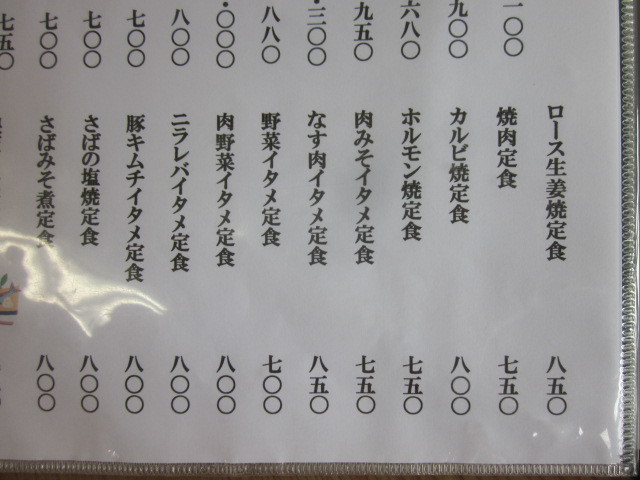 一〇〇
九〇〇
六八〇
九五〇
・三〇〇
八八〇
・〇〇〇
八〇〇
七〇〇
七〇〇
七〇〇
七五〇
ロース生姜焼定食 八五〇
焼肉定食 七五〇
カルビ焼定食 八〇〇
ホルモン焼定食 七五〇
肉みそイタメ定食 七五〇
なす肉イタメ定食 八五〇
野菜イタメ定食 七〇〇
肉野菜イタメ定食 八〇〇
ニラレバイタメ定食 八〇〇
豚キムチイタメ定食 八〇〇
さばの塩焼定食 八〇〇
さばみそ煮定食 八〇〇